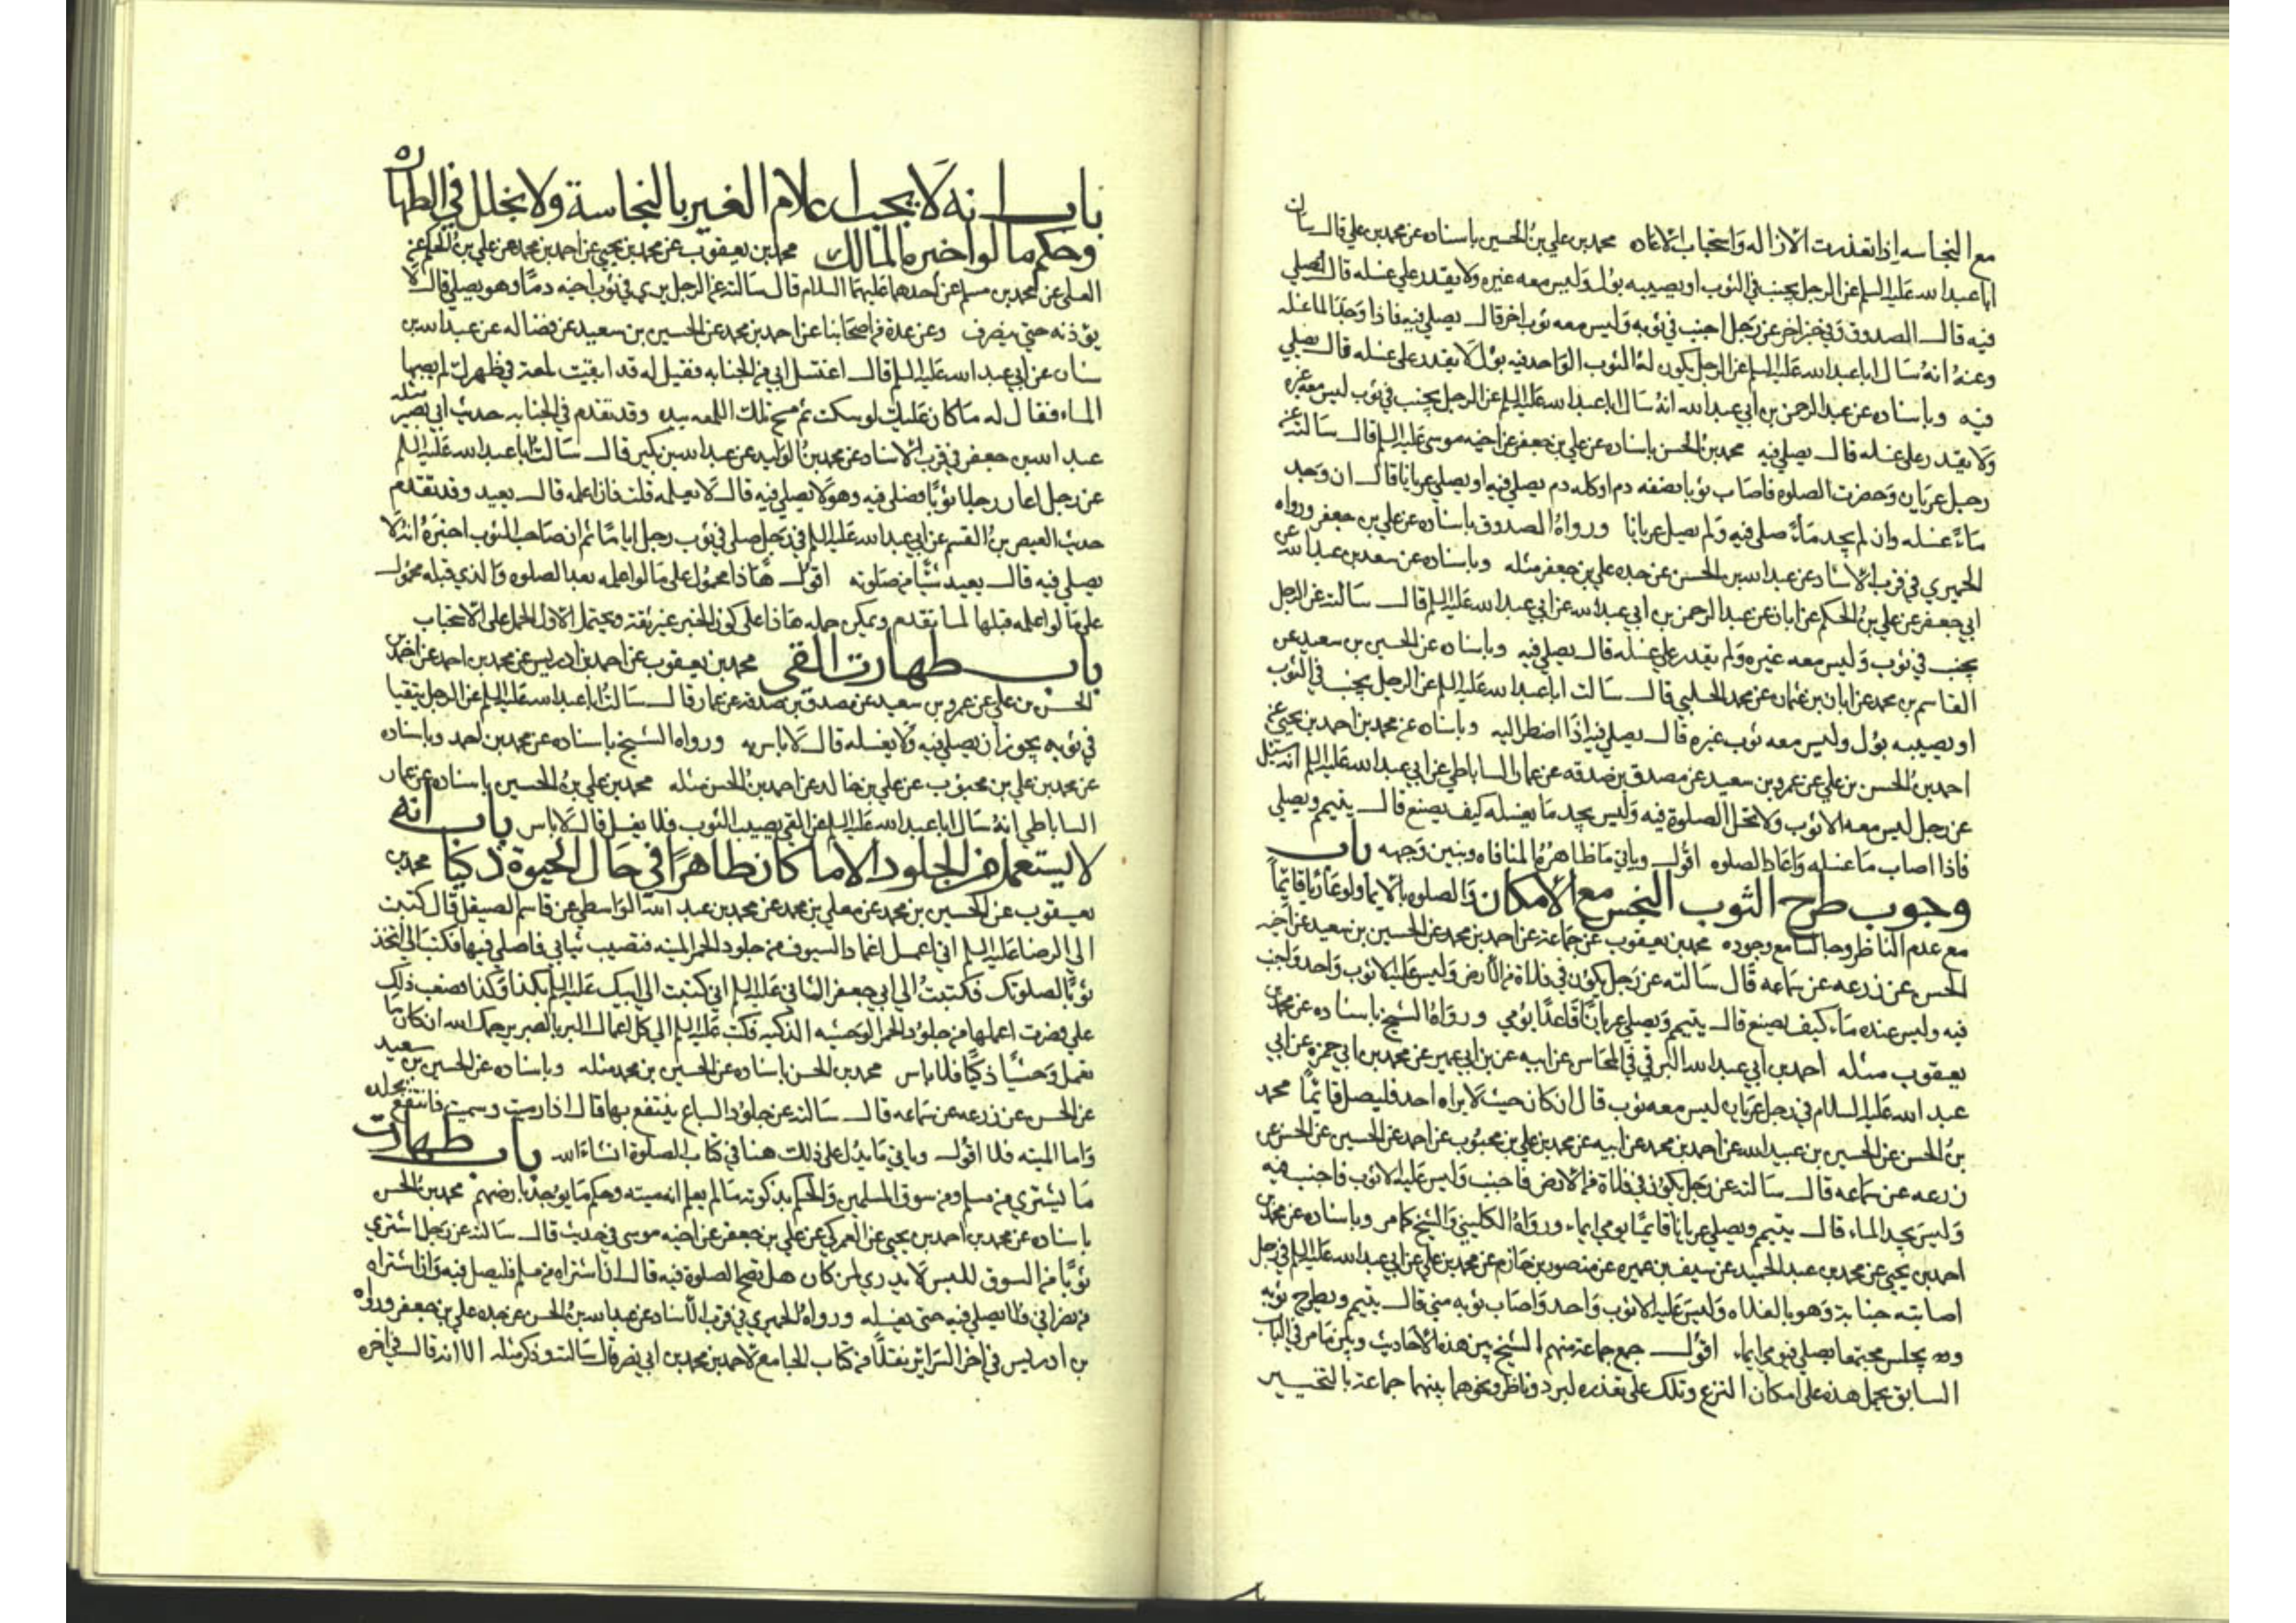 مع النجاسه اذا تعذرت الازاله واستحباب الاعاده محمد بن علي بن الحسين باسناده عن محمد بن علي قال سان
ابا عبد الله عليه السلم عن الرجل يجنب في الثوب او يصيبه بول وليس معه غيره ولا يقدر علي غسله قال يصلي
فيه قال الصدوق وفي خبر اخر عن رجل اجنب في ثوبه وليس معه ثوب اخر قال يصلي فيه فاذا وجد الماء غسله
وعنه انه سال ابا عبد الله عليه السلم عن الرجل يكون له الثوب الواحد فيه بول لا يقدر علي غسله قال يصلي
فيه وباسناده عن عبد الرحمن بن ابي عبد الله انه سال ابا عبد الله عليه السلم عن الرجل يجنب في ثوب ليس معه غيره
ولا يقدر علي غسله قال يصلي فيه محمد بن الحسن باسناده عن علي بن جعفر عن اخيه موسي عليه السلم قال سالته عن
رجل عريان وحضرت الصلوه فاصاب ثوبا نصفه دم او كله دم يصلي فيه او يصلي عريانا قال ان وجد
ماءً غسله وان لم يجد ماءً صلي فيه ولم يصل عريانا ورواه الصدوق باسناده عن علي بن جعفر ورواه
الحميري في قرب الاسناد عن عبد الله بن الحسن عن جده علي بن جعفر مثله وباسناده عن سعد بن عبد الله عن
ابي جعفر عن علي بن الحكم عن ابان عن عبد الرحمن بن ابي عبد الله عن ابي عبد الله عليه السلم قال سالته عن الرجل
يجنب في ثوب وليس معه غيره ولم يقدر علي غسله قال يصلي فيه وباسناده عن الحسين بن سعيد عن
القاسم بن محمد عن ابان بن عثمان عن محمد الحلبي قال سالت ابا عبد الله عليه السلم عن الرجل يجنب في الثوب
او يصيبه بول وليس معه ثوب غيره قال يصلي فيه اذا اضطر اليه وباسناده عن محمد بن احمد بن يحيي عن
احمد بن الحسن بن علي عن عمرو بن سعيد عن مصدق بن صدقه عن عمار الساباطي عن ابي عبد الله عليه السلم انه سئل
عن رجل ليس معه الا ثوب ولا تحل الصلوة فيه وليس يجد ما يغسله كيف يصنع قال يتيمم ويصلي
فاذا اصاب ما غسله واعاد الصلوه اقول وياتي ما ظاهره المنافاه ونبين وجهه باب
وجوب طرح الثوب النجس مع الامكان والصلوه بالايما ولو عاريا قائماً
مع عدم الناظر وجالسا مع وجوده محمد بن يعقوب عن جماعة عن احمد بن محمد عن الحسين بن سعيد عن اخيه
الحسن عن زرعه عن سماعه قال سالته عن رجل يكون في فلاة من الارض وليس عليه الا ثوب واحد واجنب
فيه وليس عنده ماء كيف يصنع قال يتيمم ويصلي عرياناً قاعداً يومي ورواه الشيخ باسناده عن محمد بن
يعقوب مثله احمد بن ابي عبد الله البرقي في المحاسن عن ابيه عن بن ابي عمير عن محمد بن ابي حمزه عن ابي
عبد الله عليه السلام في رجل عريان ليس معه ثوب قال ان كان حيث لا يراه احد فليصل قائماً محمد
بن الحسن عن الحسين بن عبيد الله عن احمد بن محمد عن ابيه عن محمد بن علي بن محبوب عن احمد عن الحسين عن الحسن عن
زرعه عن سماعه قال سالته عن رجل يكون في فلاة من الارض فاجنب وليس عليه الا ثوب فاجنب فيه
وليس يجد الماء قال يتيمم ويصلي عريانا قائماً يومي ايماء ورواه الكليني والشيخ كما مر وباسناده عن محمد بن
احمد بن يحيي عن محمد بن عبد الحميد عن سيف بن عميره عن منصور بن حازم عن محمد بن علي عن ابي عبد الله عليه السلم في رجل
اصابته جنابة وهو بالفلاه وليس عليه الا ثوب واحد واصاب ثوبه مني قال يتيمم ويطرح ثوبه
ويجلس مجتمعا يصلي فيومي ايماء اقول جمع جماعة منهم الشيخ بين هذه الاحاديث وبين ما مر في الباب
السابق بحمل هذه علي امكان النزع وتلك علي تعذره لبرد وناظر ونحوهما بينهما جماعة بالتخيير
باب انه لا يجب اعلام الغير بالنجاسة ولا بخلل في الطهاره
وحكم ما لو اخبره المالك محمد بن يعقوب عن محمد بن يحيي عن احمد بن محمد عن علي بن الحكم عن
العلا عن محمد بن مسلم عن احدهما عليهما السلام قال سالته عن الرجل يري في ثوب اخيه دماً وهو يصلي قال لا
يؤذنه حتي ينصرف وعن عدة من اصحابنا عن احمد بن محمد عن الحسين بن سعيد عن فضاله عن عبد الله بن
سنان عن ابي عبد الله عليه السلم قال اغتسل ابي من الجنابه فقيل له قد ابقيت لمعة في ظهرك لم يصبها
الماء فقال له ما كان عليك لو سكت ثم مسح تلك اللمعه بيده وقد تقدم في الجنابه حديث ابي بصير مثله
عبد الله بن جعفر في قرب الاسناد عن محمد بن الوليد عن عبد الله بن بكير قال سالت ابا عبد الله عليه السلم
عن رجل اعار رجلا ثوباً فصلي فيه وهو لا يصلي فيه قال لا يعلمه قلت فان اعلمه قال يعيد وقد تقدم
حديث العيص بن القسم عن ابي عبد الله عليه السلم في رجل صلي في ثوب رجل اياماً ثم ان صاحب الثوب اخبره انه لا
يصلي فيه قال يعيد شيًا من صلوته اقول هذا محمول علي ما لو اعلمه بعد الصلوه والذي قبله محمول
علي ما لو اعلمه قبلها لما تقدم ويمكن حمله هذا علي كون المخبر غير ثقة ويحتمل الاول الحمل علي الاستحباب
باب طهارت القي محمد بن يعقوب عن احمد بن ادريس عن محمد بن احمد عن احمد بن
الحسن بن علي عن عمرو بن سعيد عن مصدق بن صدقه عن عمار قال سالت ابا عبد الله عليه السلم عن الرجل يتقيا
في ثوبه يجوز ان يصلي فيه ولا يغسله قال لا باس به ورواه الشيخ باسناده عن محمد بن احمد وباسناده
عن محمد بن علي بن محبوب عن علي بن خالد عن احمد بن الحسن مثله محمد بن علي بن الحسين باسناده عن عمار
الساباطي انه سال ابا عبد الله عليه السلم عن القي يصيب الثوب فلا يغسل قال لا باس باب انه
لا يستعمل من الجلود الا ما كان طاهراً في حال الحيوة ذكيا محمد بن
يعقوب عن الحسين بن محمد عن معلي بن محمد عن محمد بن عبد الله الواسطي عن قاسم الصيقل قال كتبت
الي الرضا عليه السلم اني اعمل اغماد السيوف من جلود الحمر الميته فتصيب ثيابي فاصلي فيها فكتب الي اتخذ
ثوباً لصلوتك فكتبت الي ابي جعفر الثاني عليه السلم اني كتبت الي ابيك عليه السلم بكذا وكذا فصعب ذلك
علي فصرت اعملها من جلود الحمر الوحشيه الذكيه فكتب عليه السلم الي كل اعمال البر بالصبر يرحمك الله ان كان ما
تعمل وحشياً ذكيا فلا باس محمد بن الحسن باسناده عن الحسين بن محمد مثله وباسناده عن الحسين بن سعيد
عن الحسن عن زرعه عن سماعه قال سالته عن جلود السباع ينتفع بها قال اذا رميت وسميت فانتفع بجلده
واما الميته فلا اقول وياتي ما يدل علي ذلك هنا في كتاب الصلوة ان شاء الله باب طهارت
ما يشتري من مسلم ومن سوق المسلمين والحكم بذكوته ما لم يعلم انه ميته وحكم ما يوجد بارضهم محمد بن الحسن
باسناده عن محمد بن احمد بن يحيي عن العمركي عن علي بن جعفر عن اخيه موسي في حديث قال سالته عن رجل اشتري
ثوباً من السوق للبس لا يدري لمن كان هل تصح الصلوة فيه قال ان اشتراه من مسلم فليصل فيه وان اشتراه
من نصراني فلا يصلي فيه حتي يغسله ورواه الحميري في قرب الاسناد عن عبد الله بن الحسن عن جده علي بن جعفر ورواه
بن ادريس في اخر السرائر نقلاً من كتاب الجامع لاحمد بن محمد بن ابي نصر قال سالته وذكر مثله الا انه قال في اخره